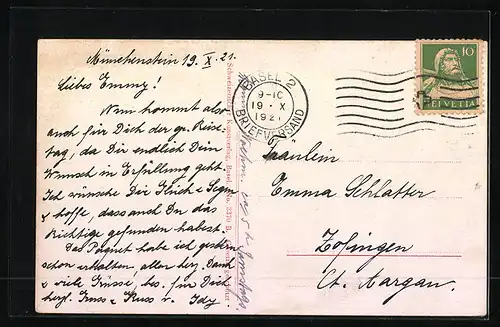 Münchenstein 19. X. 21.
Liebes Emmy!
Nun kommt also
auch für Dich der gr. Reise-
tag, da Dir endlich Dein
Wunsch in Erfüllung geht.
Ich wünsche Dir Glück & Segen
& hoffe, dass auch Du das
Richtige gefunden habest.
Das Paquet habe ich gestern
schon erhalten, allen herz. Dank
& viele Grüsse, bes. für Dich
herzl. Gruss & Kuss v. Idy.
Schweizerischer Kunstverlag, Basel
No. 3370 B.
BASEL 2
9-10
19. X
1921
BRIEFVERSAND
10
HELVETIA
Fräulein
Emma Schlatter
Zofingen
Ct. Aargau.